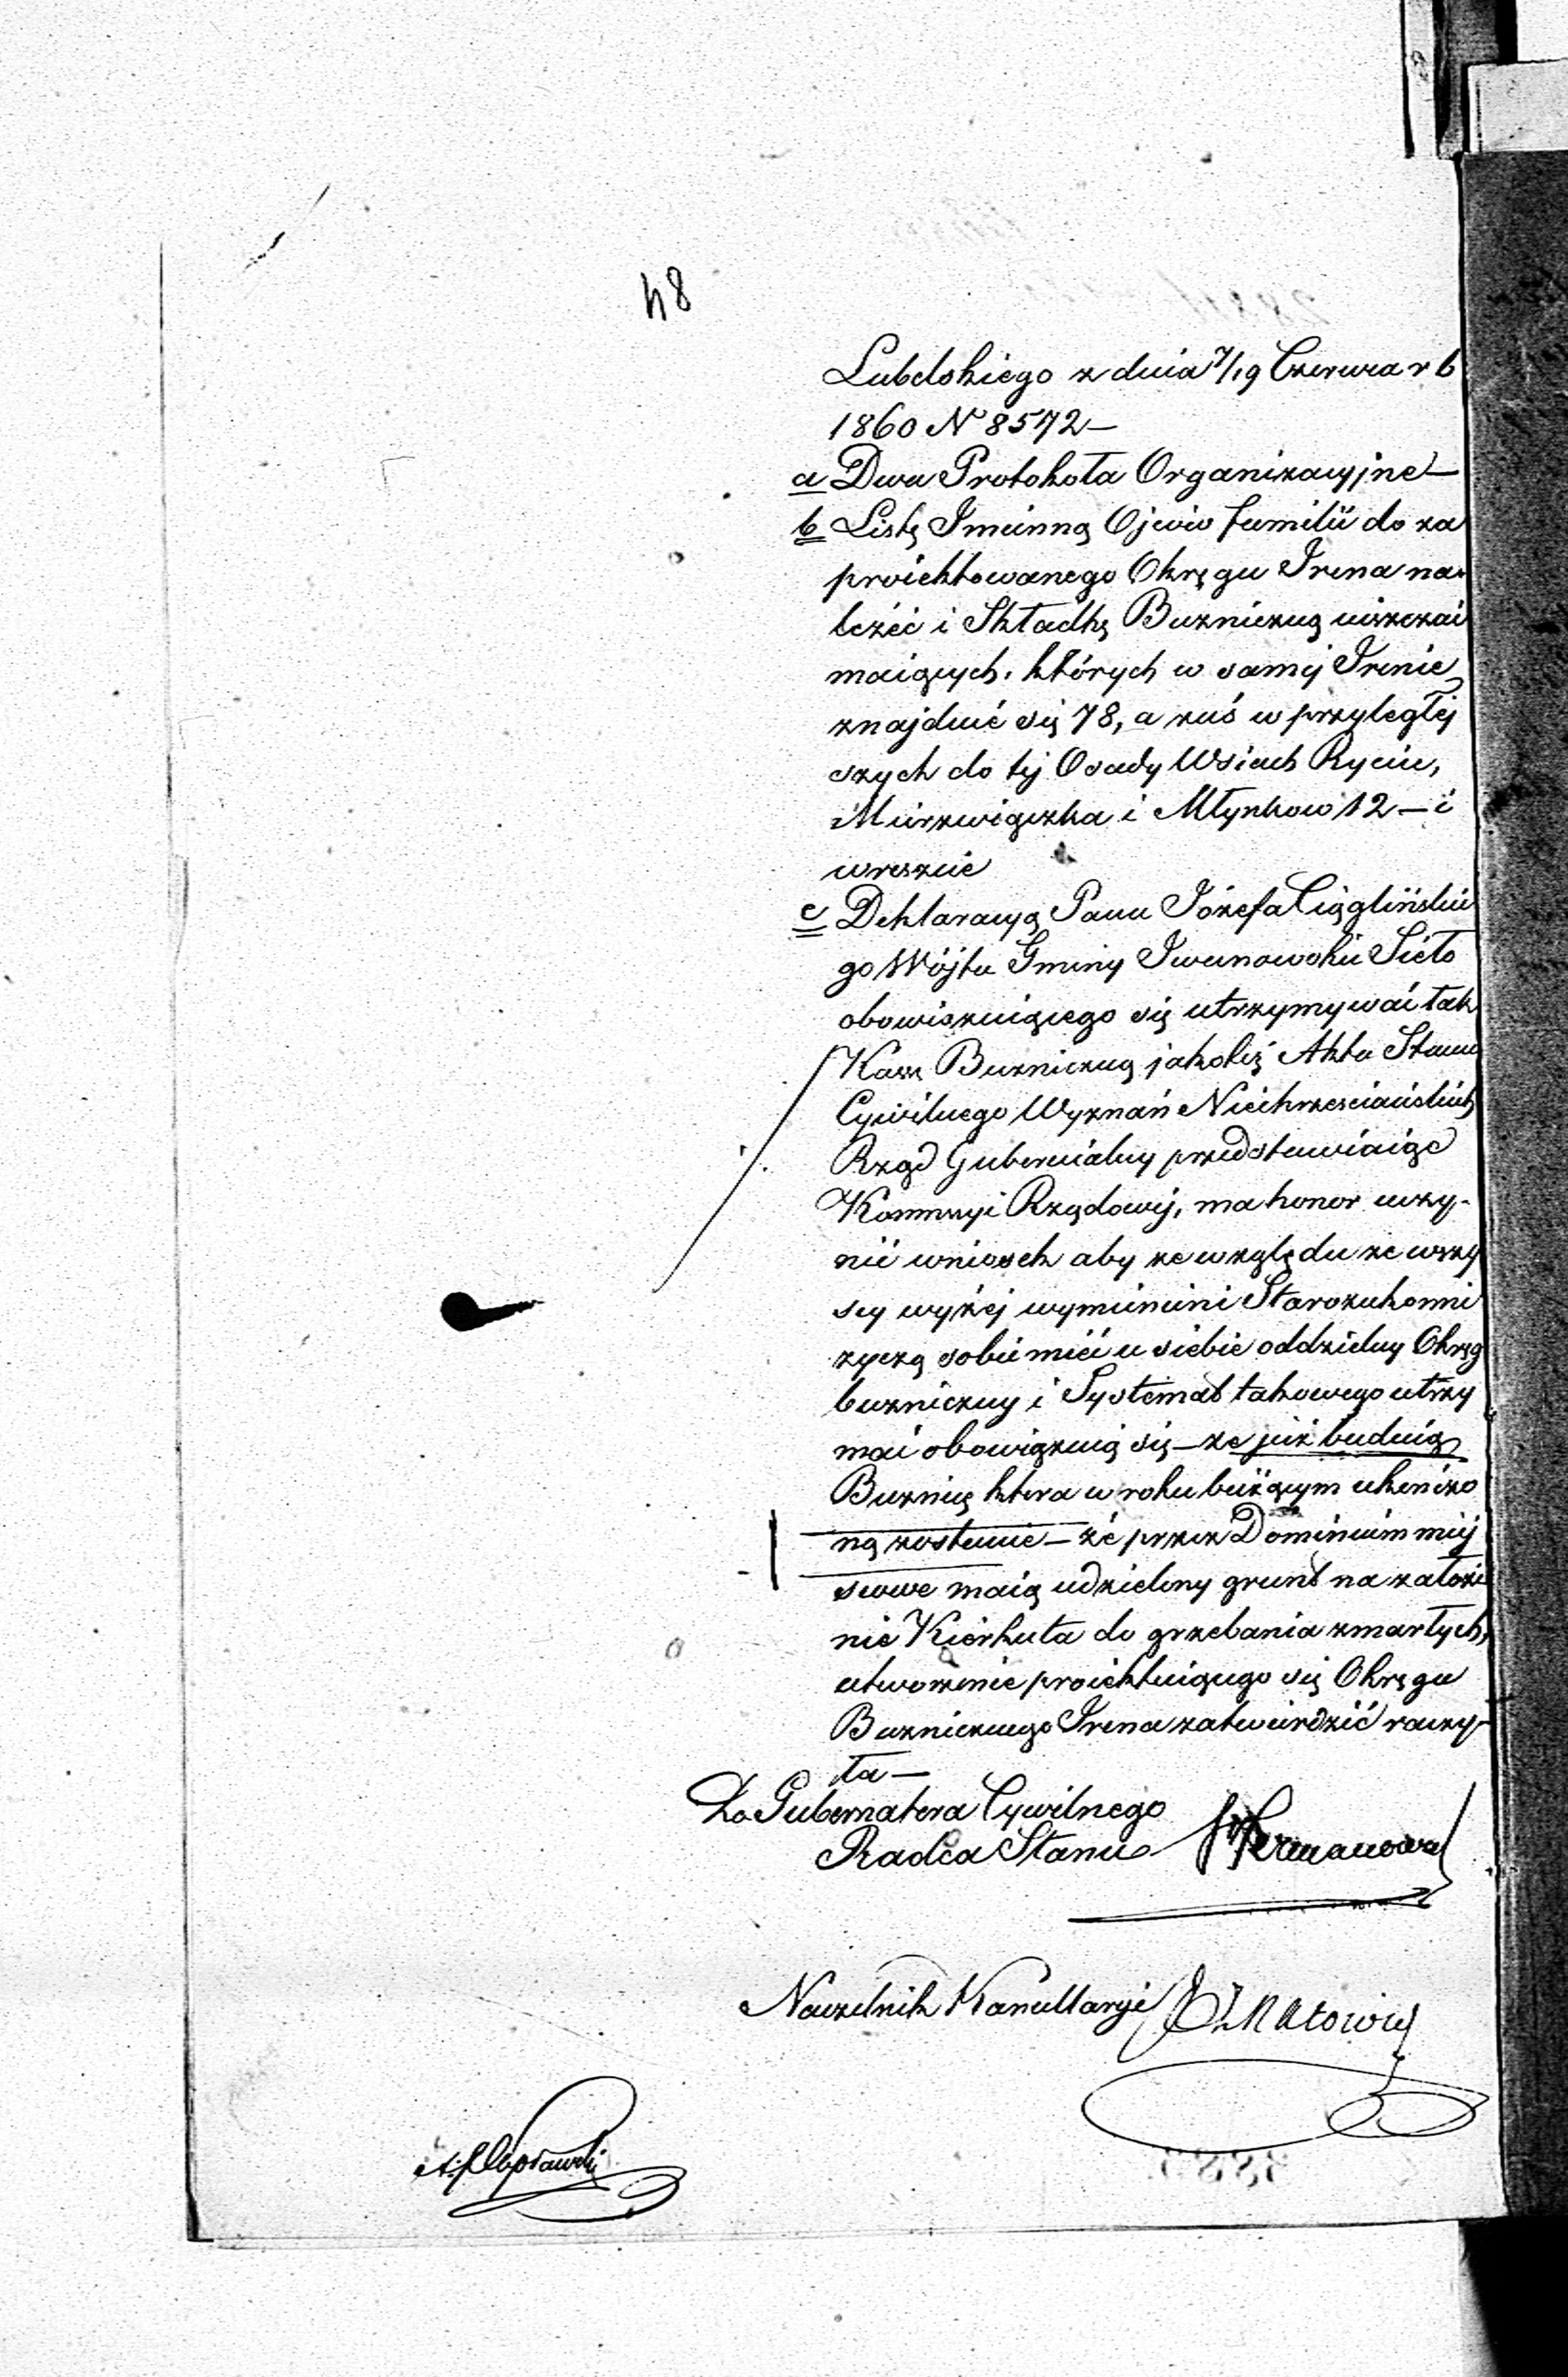 48
Lubelskiego z dnia 7/19 Czerwca r b
1860 N 8572—
a Dwa Protokoła Organizacyjne—
b Listę Imienną Ojców familii do za
proiektowanego Okręgu Irena na-
leżéć i Składkę Bużniczną uiszczać
maiących, których w saméj Irenie
znajduié się 78, a zaś w przyległéj
szych do téj Osady Wsiach Rycice,
Mierzwiączka i Młynkow 12— i
wreszcie
c Deklaracyą Pana Józefa Cięglińskie
go Wójta Gminy Iwanowskie Sieło
obowiązuiącego się utrzymywać tak
Kassę Bużniczną jakoliż Akta Stanu
Cywilnego Wyznań Niechrześciańskich
Rząd Gubernialny przedstawiaiąc
Kommsyi Rządowéj, ma honor uczy-
nić wniosek aby ze względu że wszy
scy wyżéj wymienieni Starozakonni
życzą sobie miéć u siebie oddzielny Okręg
bużniczny i Systemat takowego utrzy
mać obowiązuią się— że już buduią
Bużnię ktera w roku bieżącym ukończo
ną zostanie— że przez Dominium miéj
scowe maią udzielony grunt na założe
nie Kierkuta do grzebania zmarłych,
utworzenie proiektuiącego się Okręgu
Bużnicznego Irena zatwierdzić raczy-
ła—
Za Gubernatora Cywilnego
Radca Stanu
Naczelnik Kancellaryi